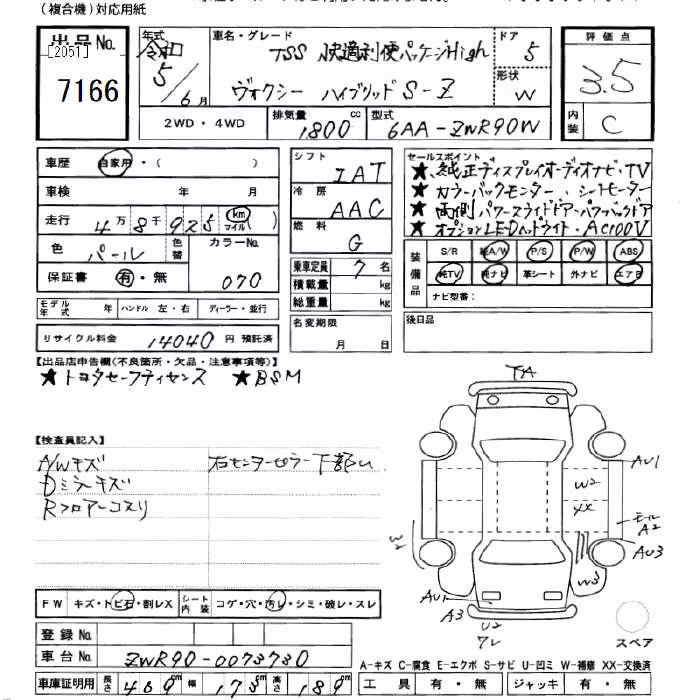 (複合機)対応用紙
出品No.
[2051]
7166
年式
令和
5/6月
車名・グレード
TSS 快適利便パッケージHigh
ヴォクシー ハイブリッド S-Z
ドア
5
形状
W
評価点
3.5
内装
C
2WD・4WD
排気量
1800cc
型式
6AA-ZWR90W
車歴
自家用・( )
車検
年 月
走行
4万8千925
km
マイル
色
パール
色替
カラーNo.
070
保証書
有・無
モデル年式
年
ハンドル 左・右
ディーラー・並行
リサイクル料金
14040円 預託済
シフト
IAT
冷房
AAC
燃料
G
乗車定員
7名
積載量
kg
総重量
kg
名変期限
月 日
セールスポイント
★純正ディスプレイオーディオナビ・TV
★カラーバックモンター、シートヒーター
★両側パワースライドドア・パワーバックドア
★オプションLEDヘッドライト・AC100V
装備品
S/R 純A/W P/S P/W ABS
純TV 純ナビ 革シート 外ナビ エアB
ナビ型番:
後日品
【出品店申告欄(不良箇所・欠品・注意事項等)】
★トヨタセーフティセンス ★BSM
【検査員記入】
NWキズ
Dミラーキズ
Rフロアーコスリ
右センターピラー下部U
TA
AU1
W2
XX
モールA2
AU3
W2
W3
AU1
A3
U2
ワレ
スペア
FW
キズ・トビ石・割レX
シート内装
コゲ・穴・汚レ・シミ・破レ・スレ
登録No.
車台No.
ZWR90-0073730
車庫証明用
長さ
469
幅
173
高さ
189
A-キズ C-腐食 E-エクボ S-サビ U-凹ミ W-補修 XX-交換済
工具 有・無
ジャッキ 有・無